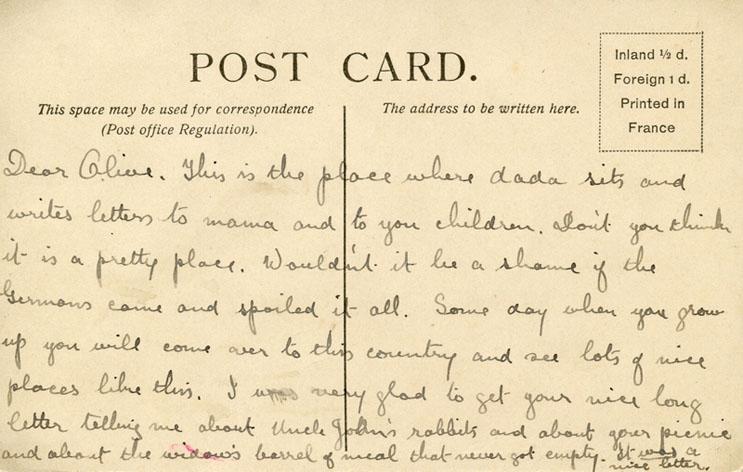 POST CARD.
This space may be used for correspondence
(Post office Regulation).
The address to be written here.
Inland ½ d.
Foreign 1 d.
Printed in
France
Dear Olive. This is the place where dada sits and
writes letters to mama and to you children. Don't you think
it is a pretty place. Wouldn't it be a shame if the
Germans came and spoiled it all. Some day when you grow
up you will come over to this country and see lots of nice
places like this. I was very glad to get your nice long
letter telling me about Uncle John's rabbits and about your picnic
and about the widow's barrel of meal that never got empty. It was a
nice letter.